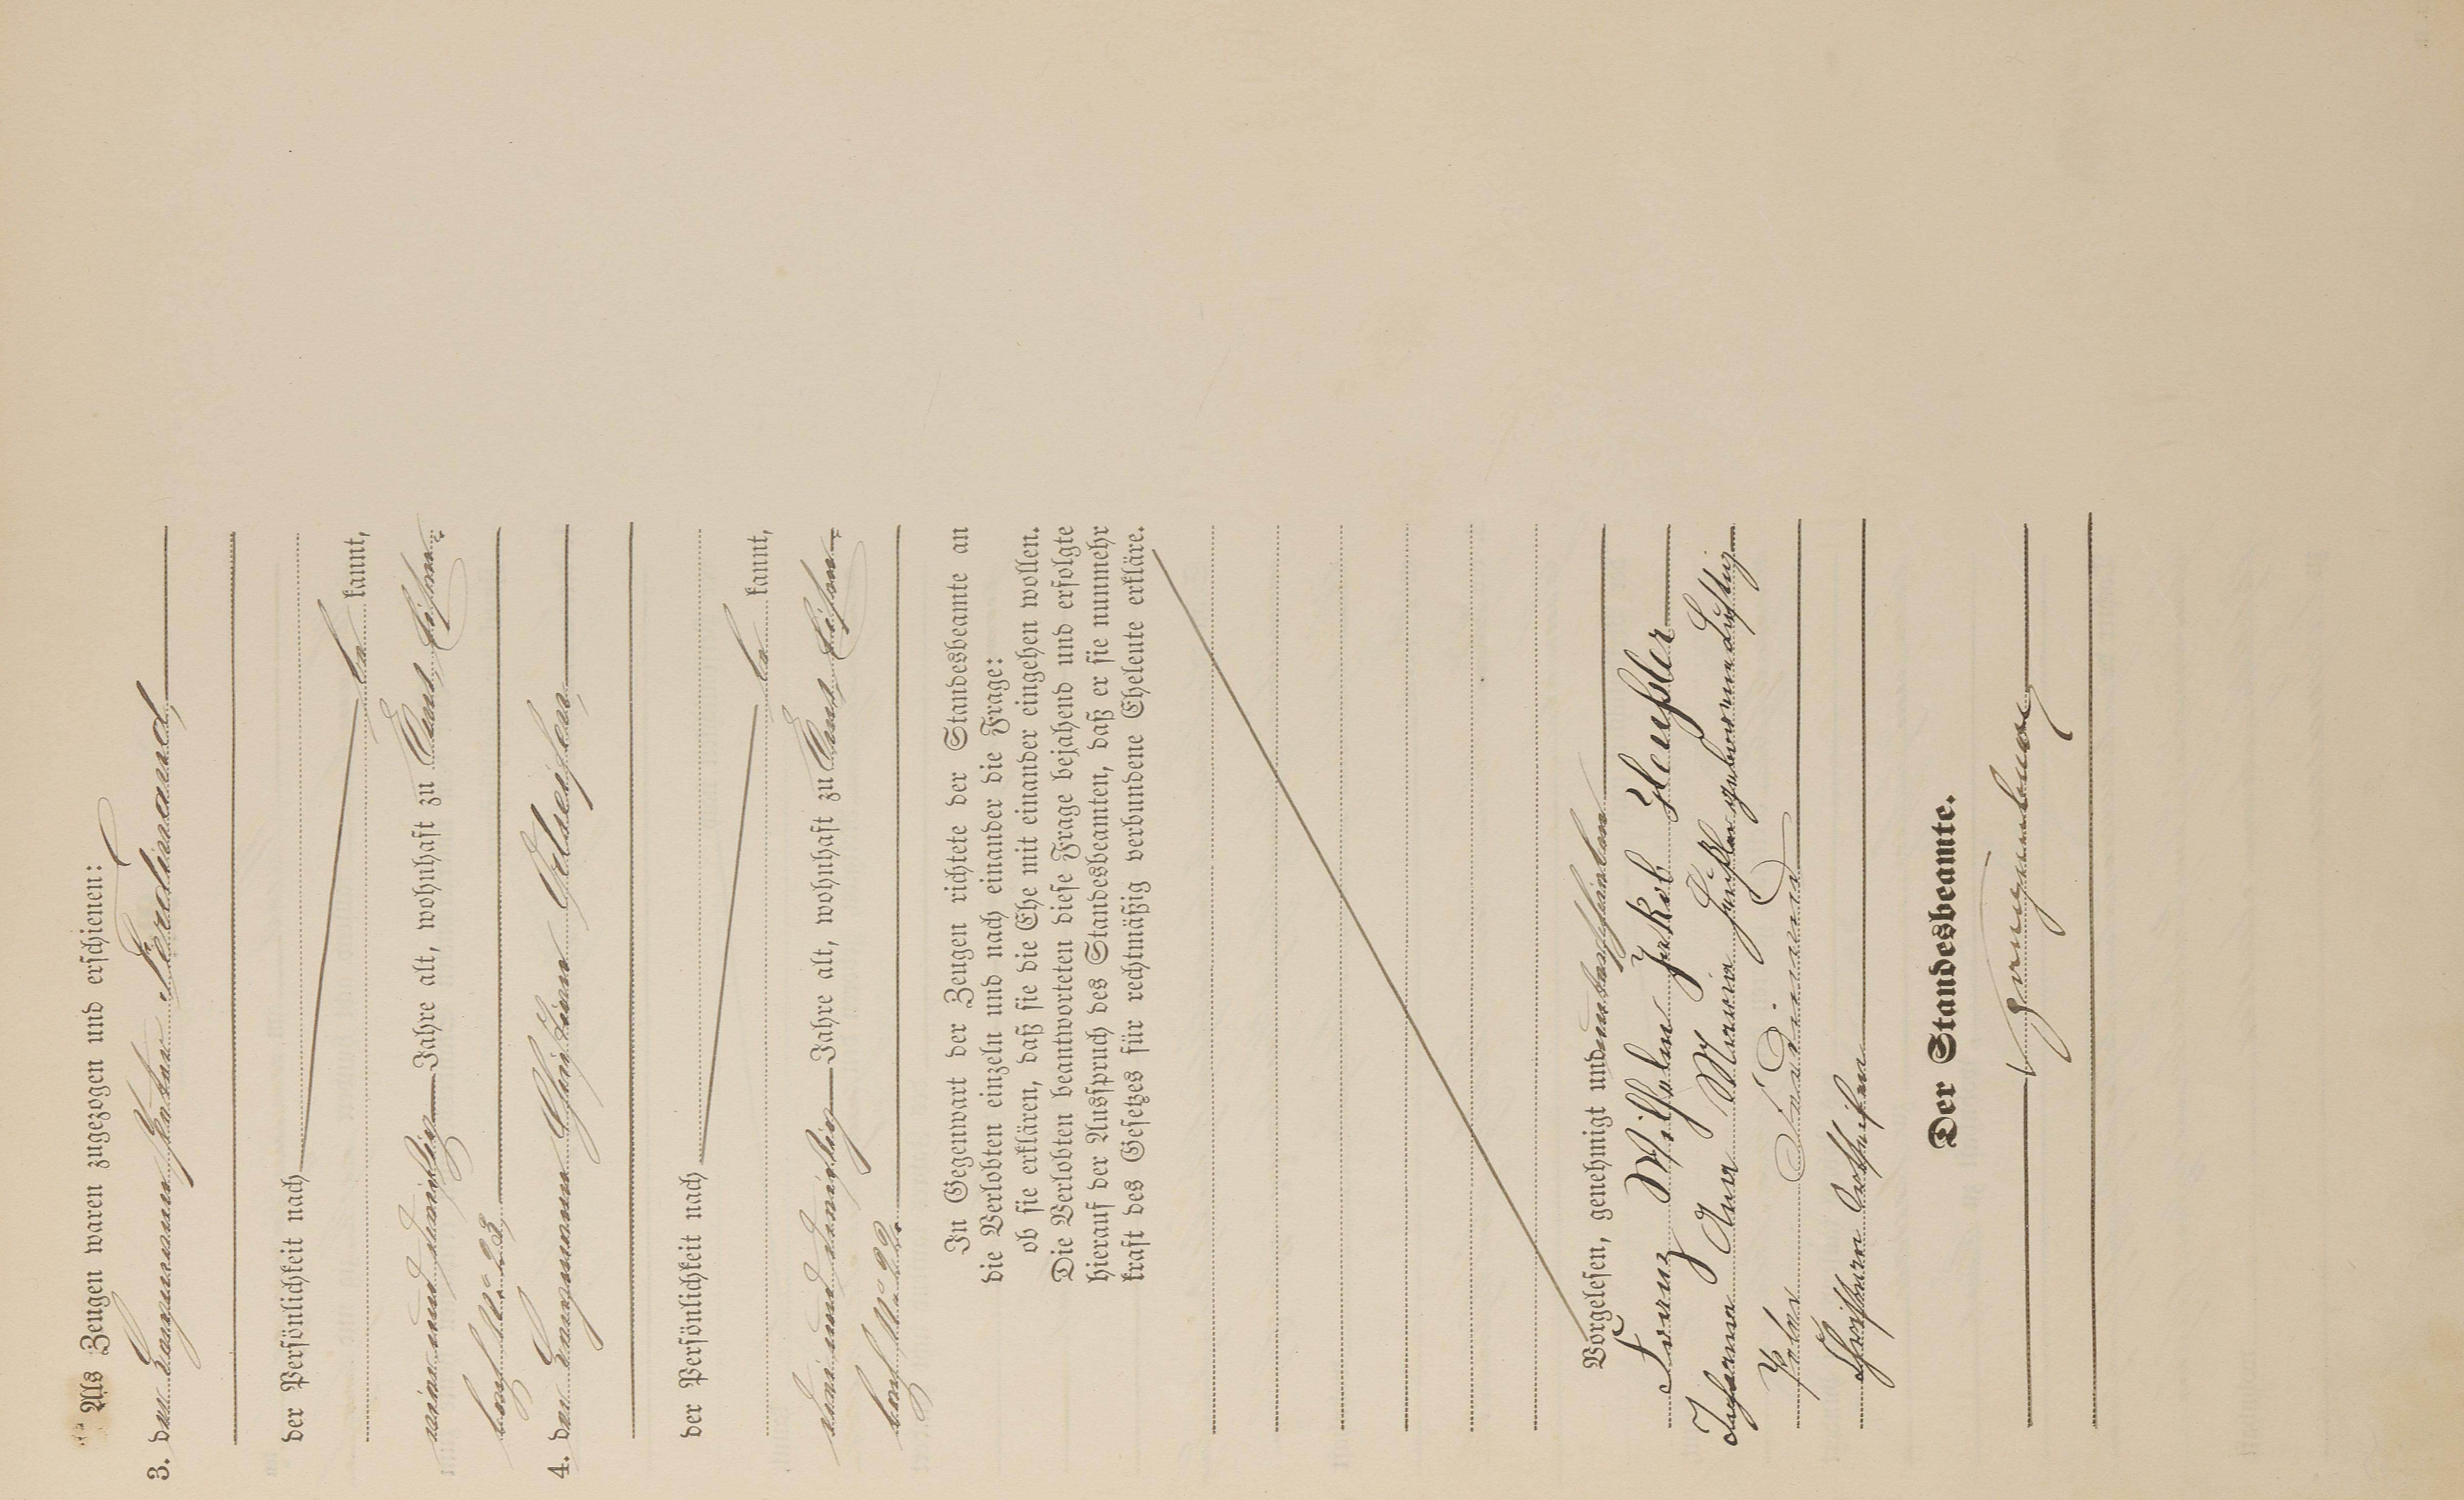 Als Zeugen waren zugezogen und erschienen:
3. der Bergmann Peter Ferdinand
der Persönlichkeit nach
be kannt,
und dreißig Jahre alt, wohnhaft zu
No 23
4. der Bergmann Christian
der Persönlichkeit nach
be kannt,
und dreißig Jahre alt, wohnhaft zu
No 22.
In Gegenwart der Zeugen richtete der Standesbeamte an
die Verlobten einzeln und nach einander die Frage:
ob sie erklären, daß sie die Ehe mit einander eingehen wollen.
Die Verlobten beantworteten diese Frage bejahend und erfolgte
hierauf der Ausspruch des Standesbeamten, daß er sie nunmehr
kraft des Gesetzes für rechtmäßig verbundene Eheleute erkläre.
Vorgelesen, genehmigt und unterschrieben
Franz Wilhelm Jakob Heußler
Johanna Anna Maria Heußler geborene
Peter Ferdinand
Christian
Der Standesbeamte.